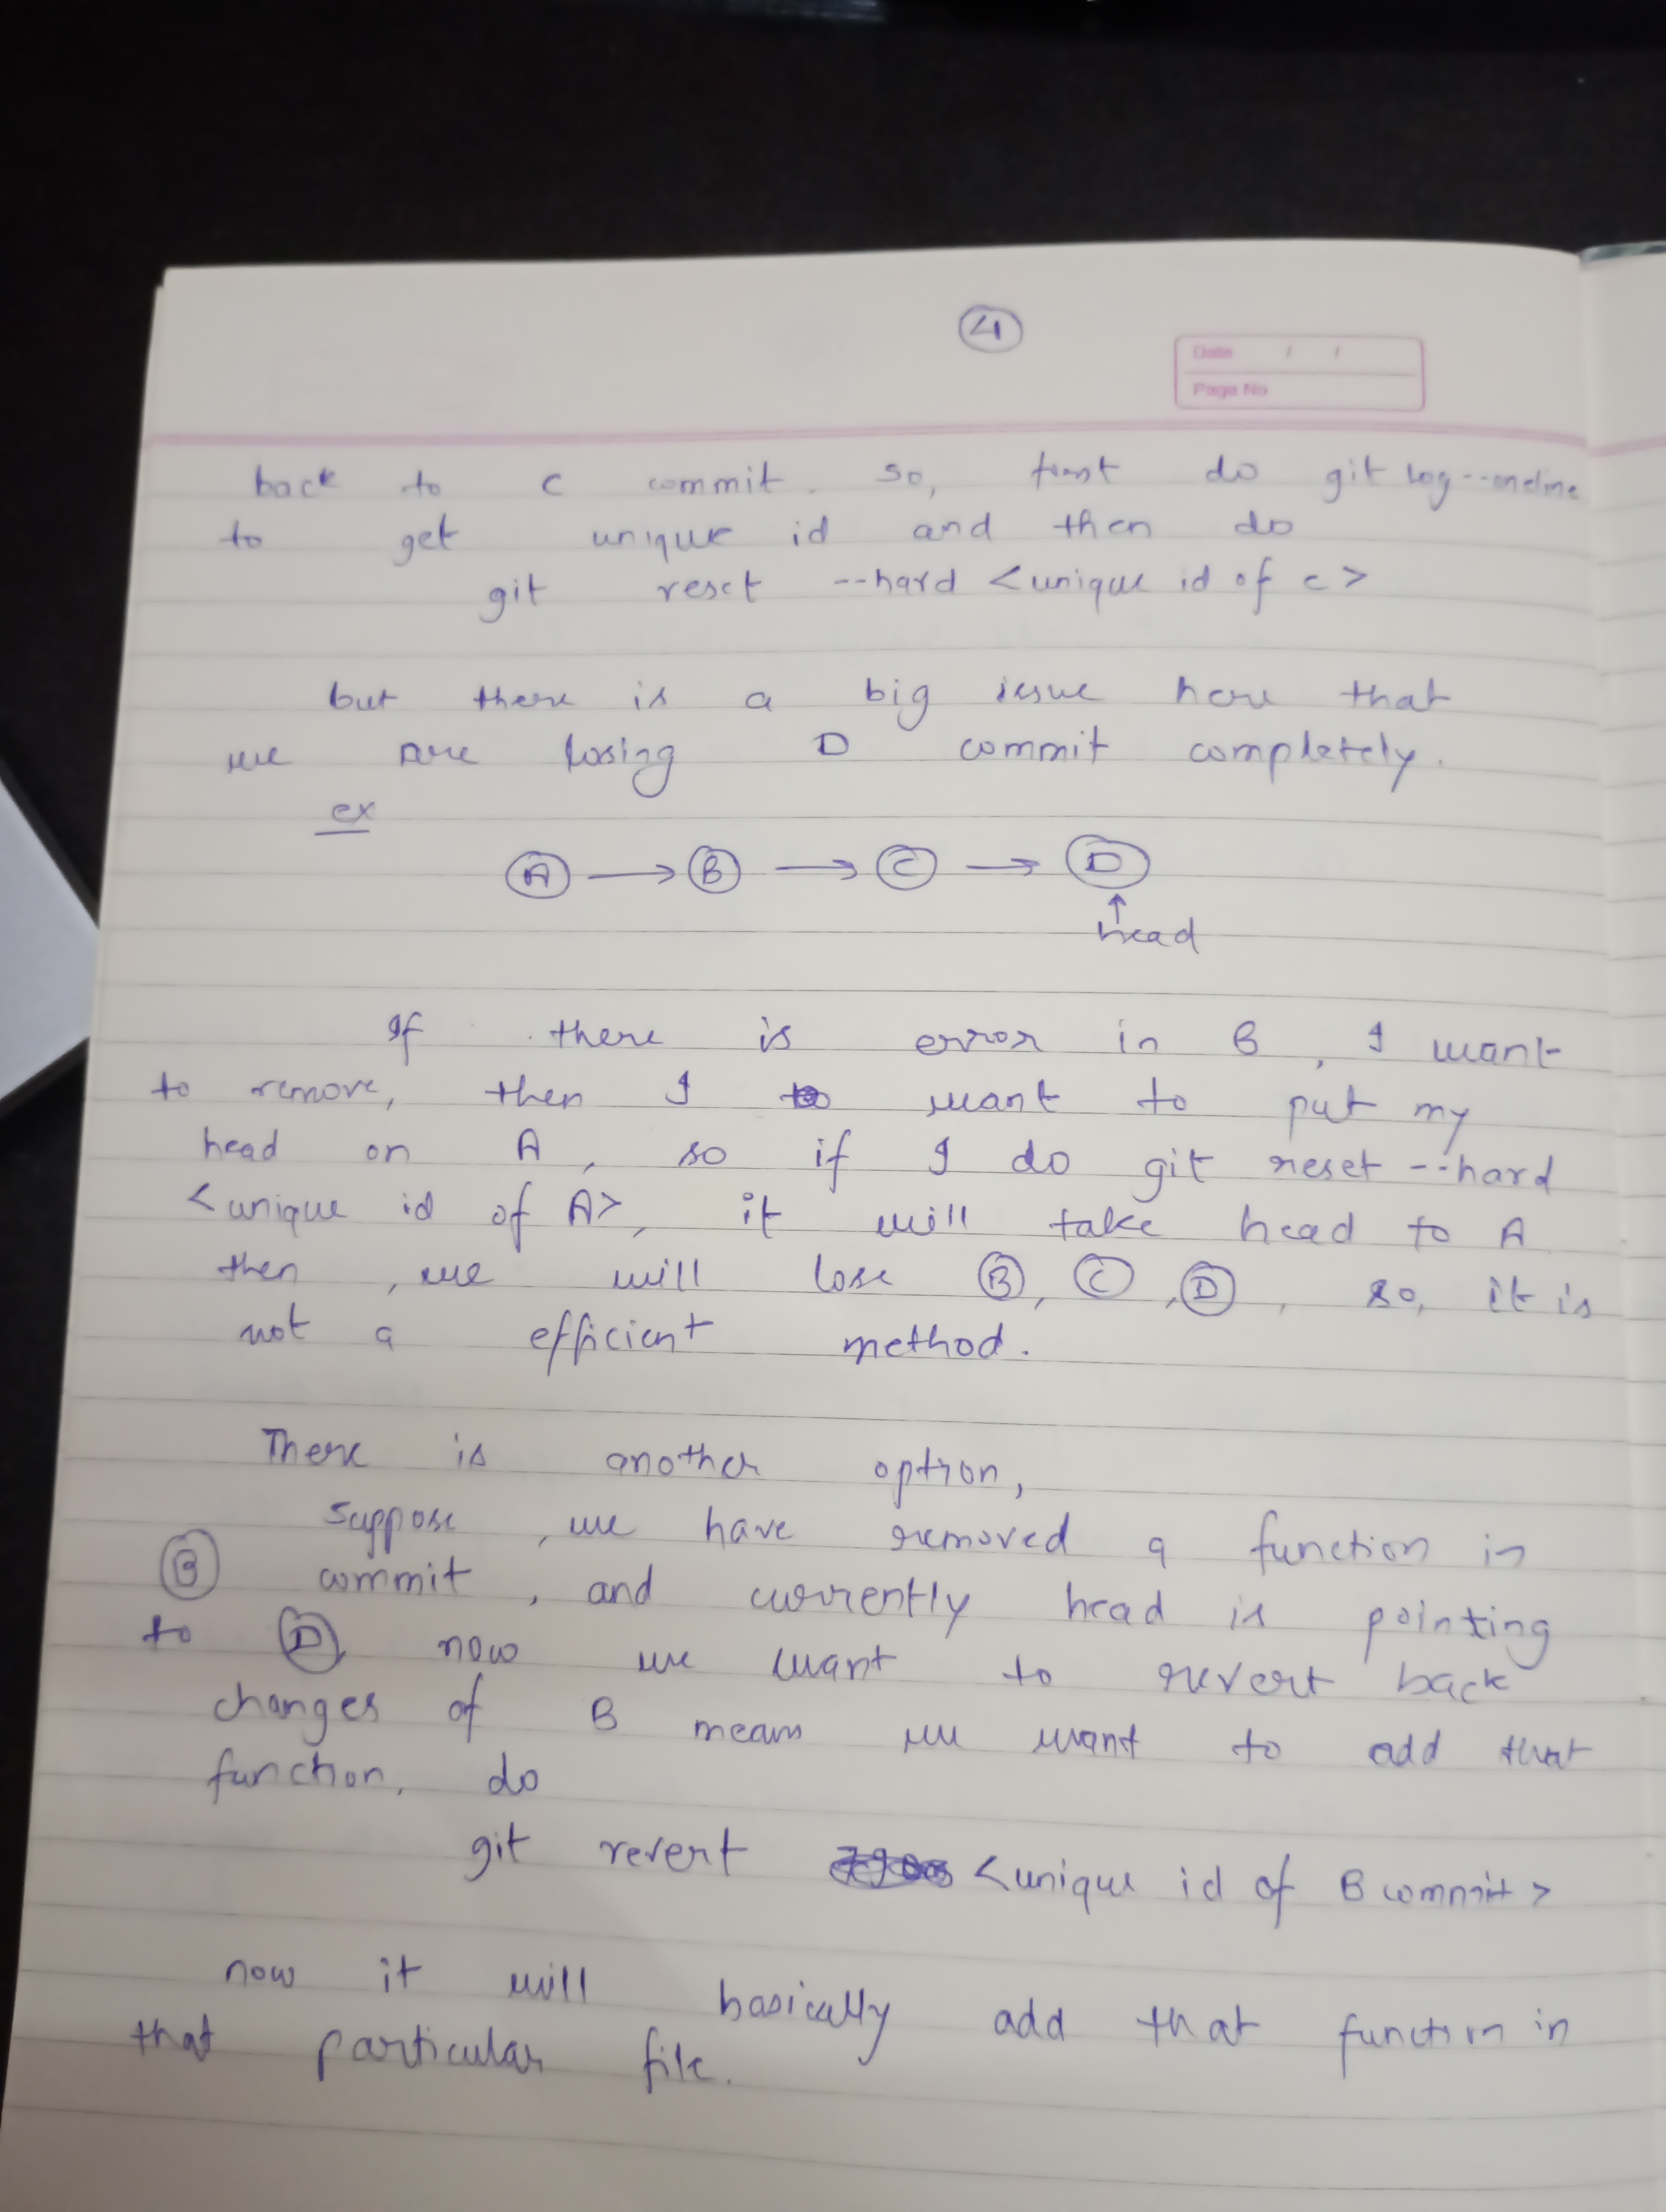 4
Date / /
Page No
back to c commit. so, first do git log --oneline
to get unique id and then do
git reset --hard <unique id of c>
but there is a big issue here that
we are losing D commit completely.
ex
A → B → C → D
↑
head
If there is error in B, I want
to remove, then I want to put my
head on A, so if I do git reset --hard
<unique id of A>, it will take head to A
then, we will lose B, C, D, so, it is
not a efficient method.
There is another option,
Suppose, we have removed a function in
B commit, and currently head is pointing
to D, now we want to revert back
changes of B means we want to add that
function, do
git revert <unique id of B commit>
now it will basically add that function in
that particular file.